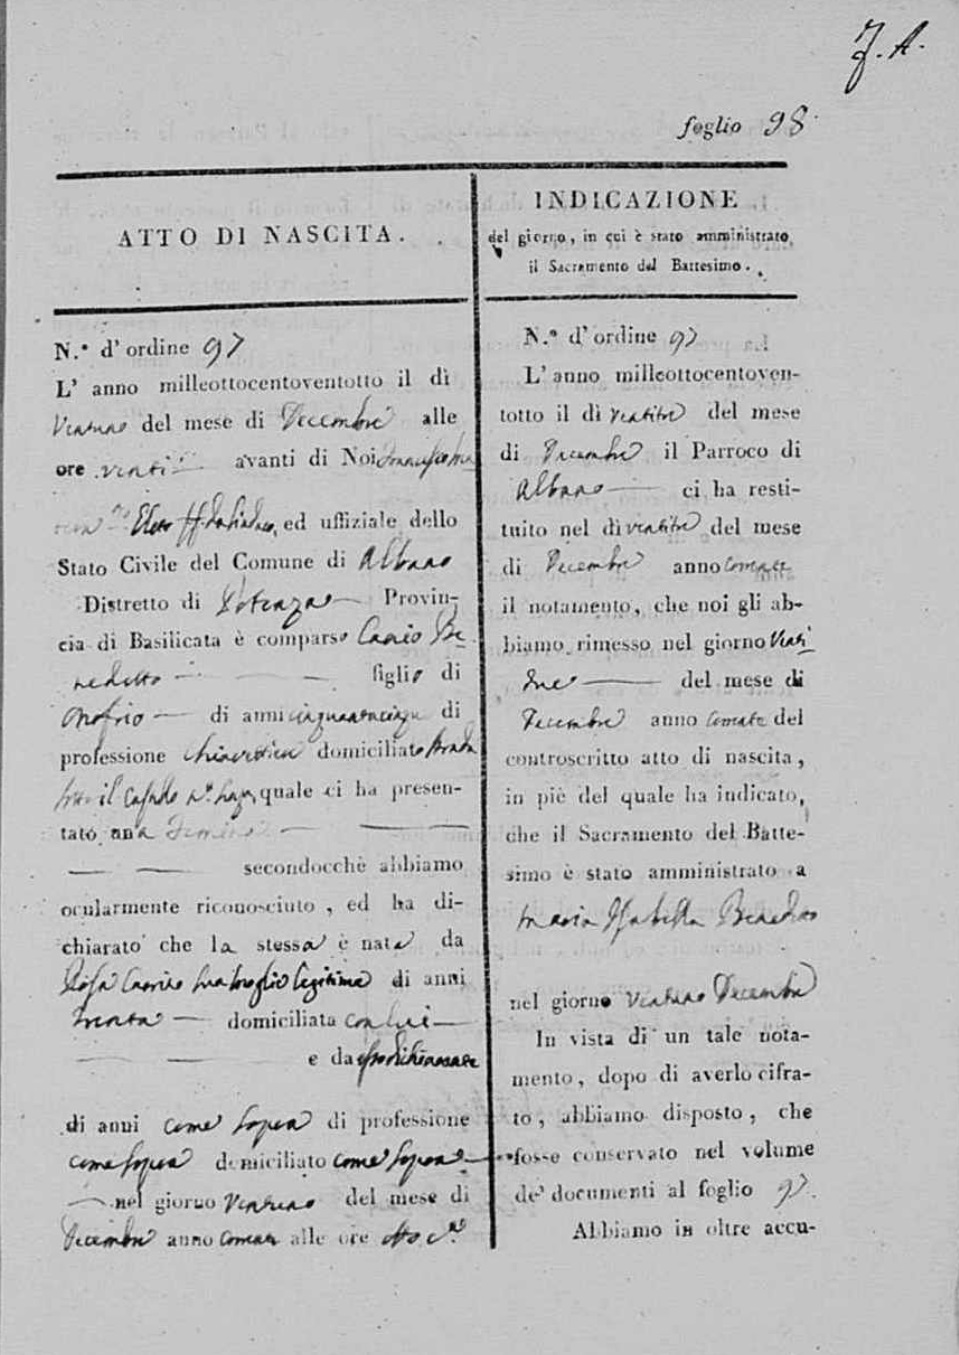 F. A.
foglio 98
ATTO DI NASCITA.
N.° d'ordine 97
L' anno milleottocentoventotto il dì
Ventuno del mese di Decembre alle
ore venti avanti di Noi
Eletto ff. da Sindaco, ed uffiziale dello
Stato Civile del Comune di Albano
Distretto di Potenza Provin-
cia di Basilicata è comparso Canio Be
nedetto figlio di
Onofrio di anni cinquantacinque di
professione domiciliato Strada
quale ci ha presen-
tato una Femina
secondocchè abbiamo
ocularmente riconosciuto, ed ha di-
chiarato che la stessa è nata da
Rosa sua moglie legitima di anni
trenta domiciliata con lui
e da esso dichiarante
di anni come sopra di professione
come sopra domiciliato come sopra
nel giorno Ventuno del mese di
Decembre anno corrente alle ore otto
INDICAZIONE
del giorno, in cui è stato amministrato
il Sacramento del Battesimo.
N.° d'ordine 97
L'anno milleottocentoven-
totto il dì ventitre del mese
di Decembre il Parroco di
Albano ci ha resti-
tuito nel dì ventitre del mese
di Decembre anno corrente
il notamento, che noi gli ab-
biamo rimesso nel giorno Venti
due del mese di
Decembre anno corrente del
controscritto atto di nascita,
in piè del quale ha indicato,
che il Sacramento del Batte-
simo è stato amministrato a
Maria Isabella Benedetto
nel giorno ventuno Decembre
In vista di un tale nota-
mento, dopo di averlo cifra-
to, abbiamo disposto, che
fosse conservato nel volume
de' documenti al foglio 97.
Abbiamo in oltre accu-